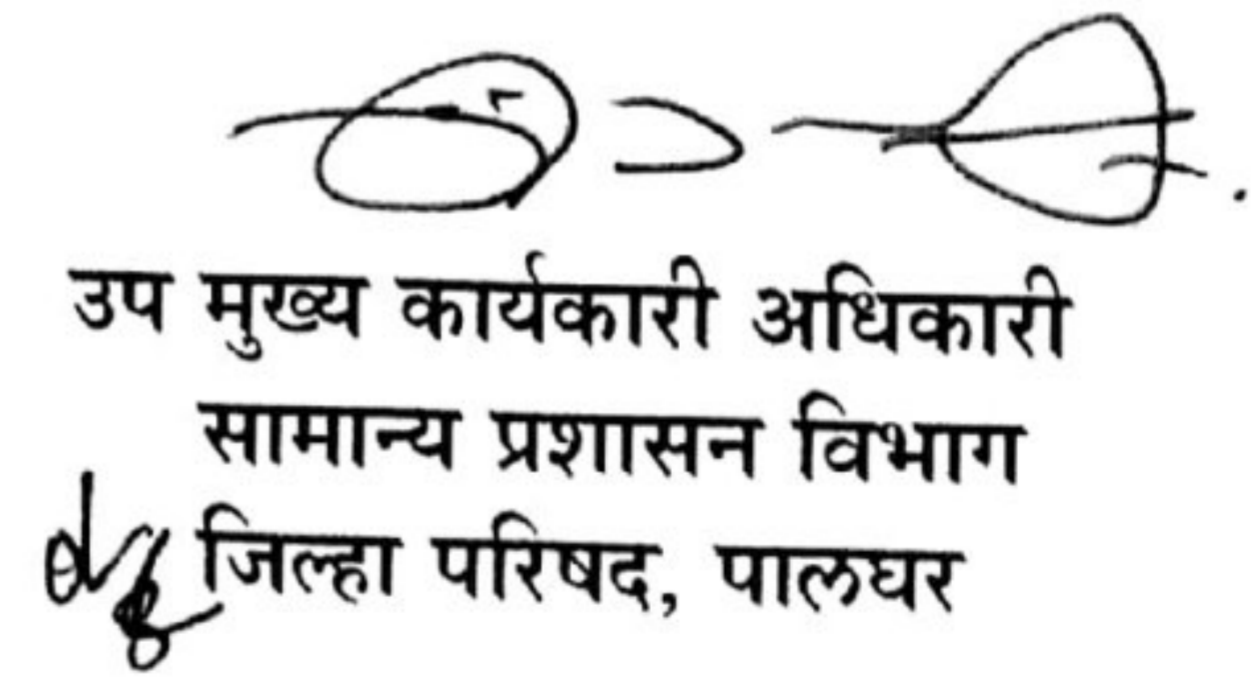 उप मुख्य कार्यकारी अधिकारी
सामान्य प्रशासन विभाग
जिल्हा परिषद, पालघर